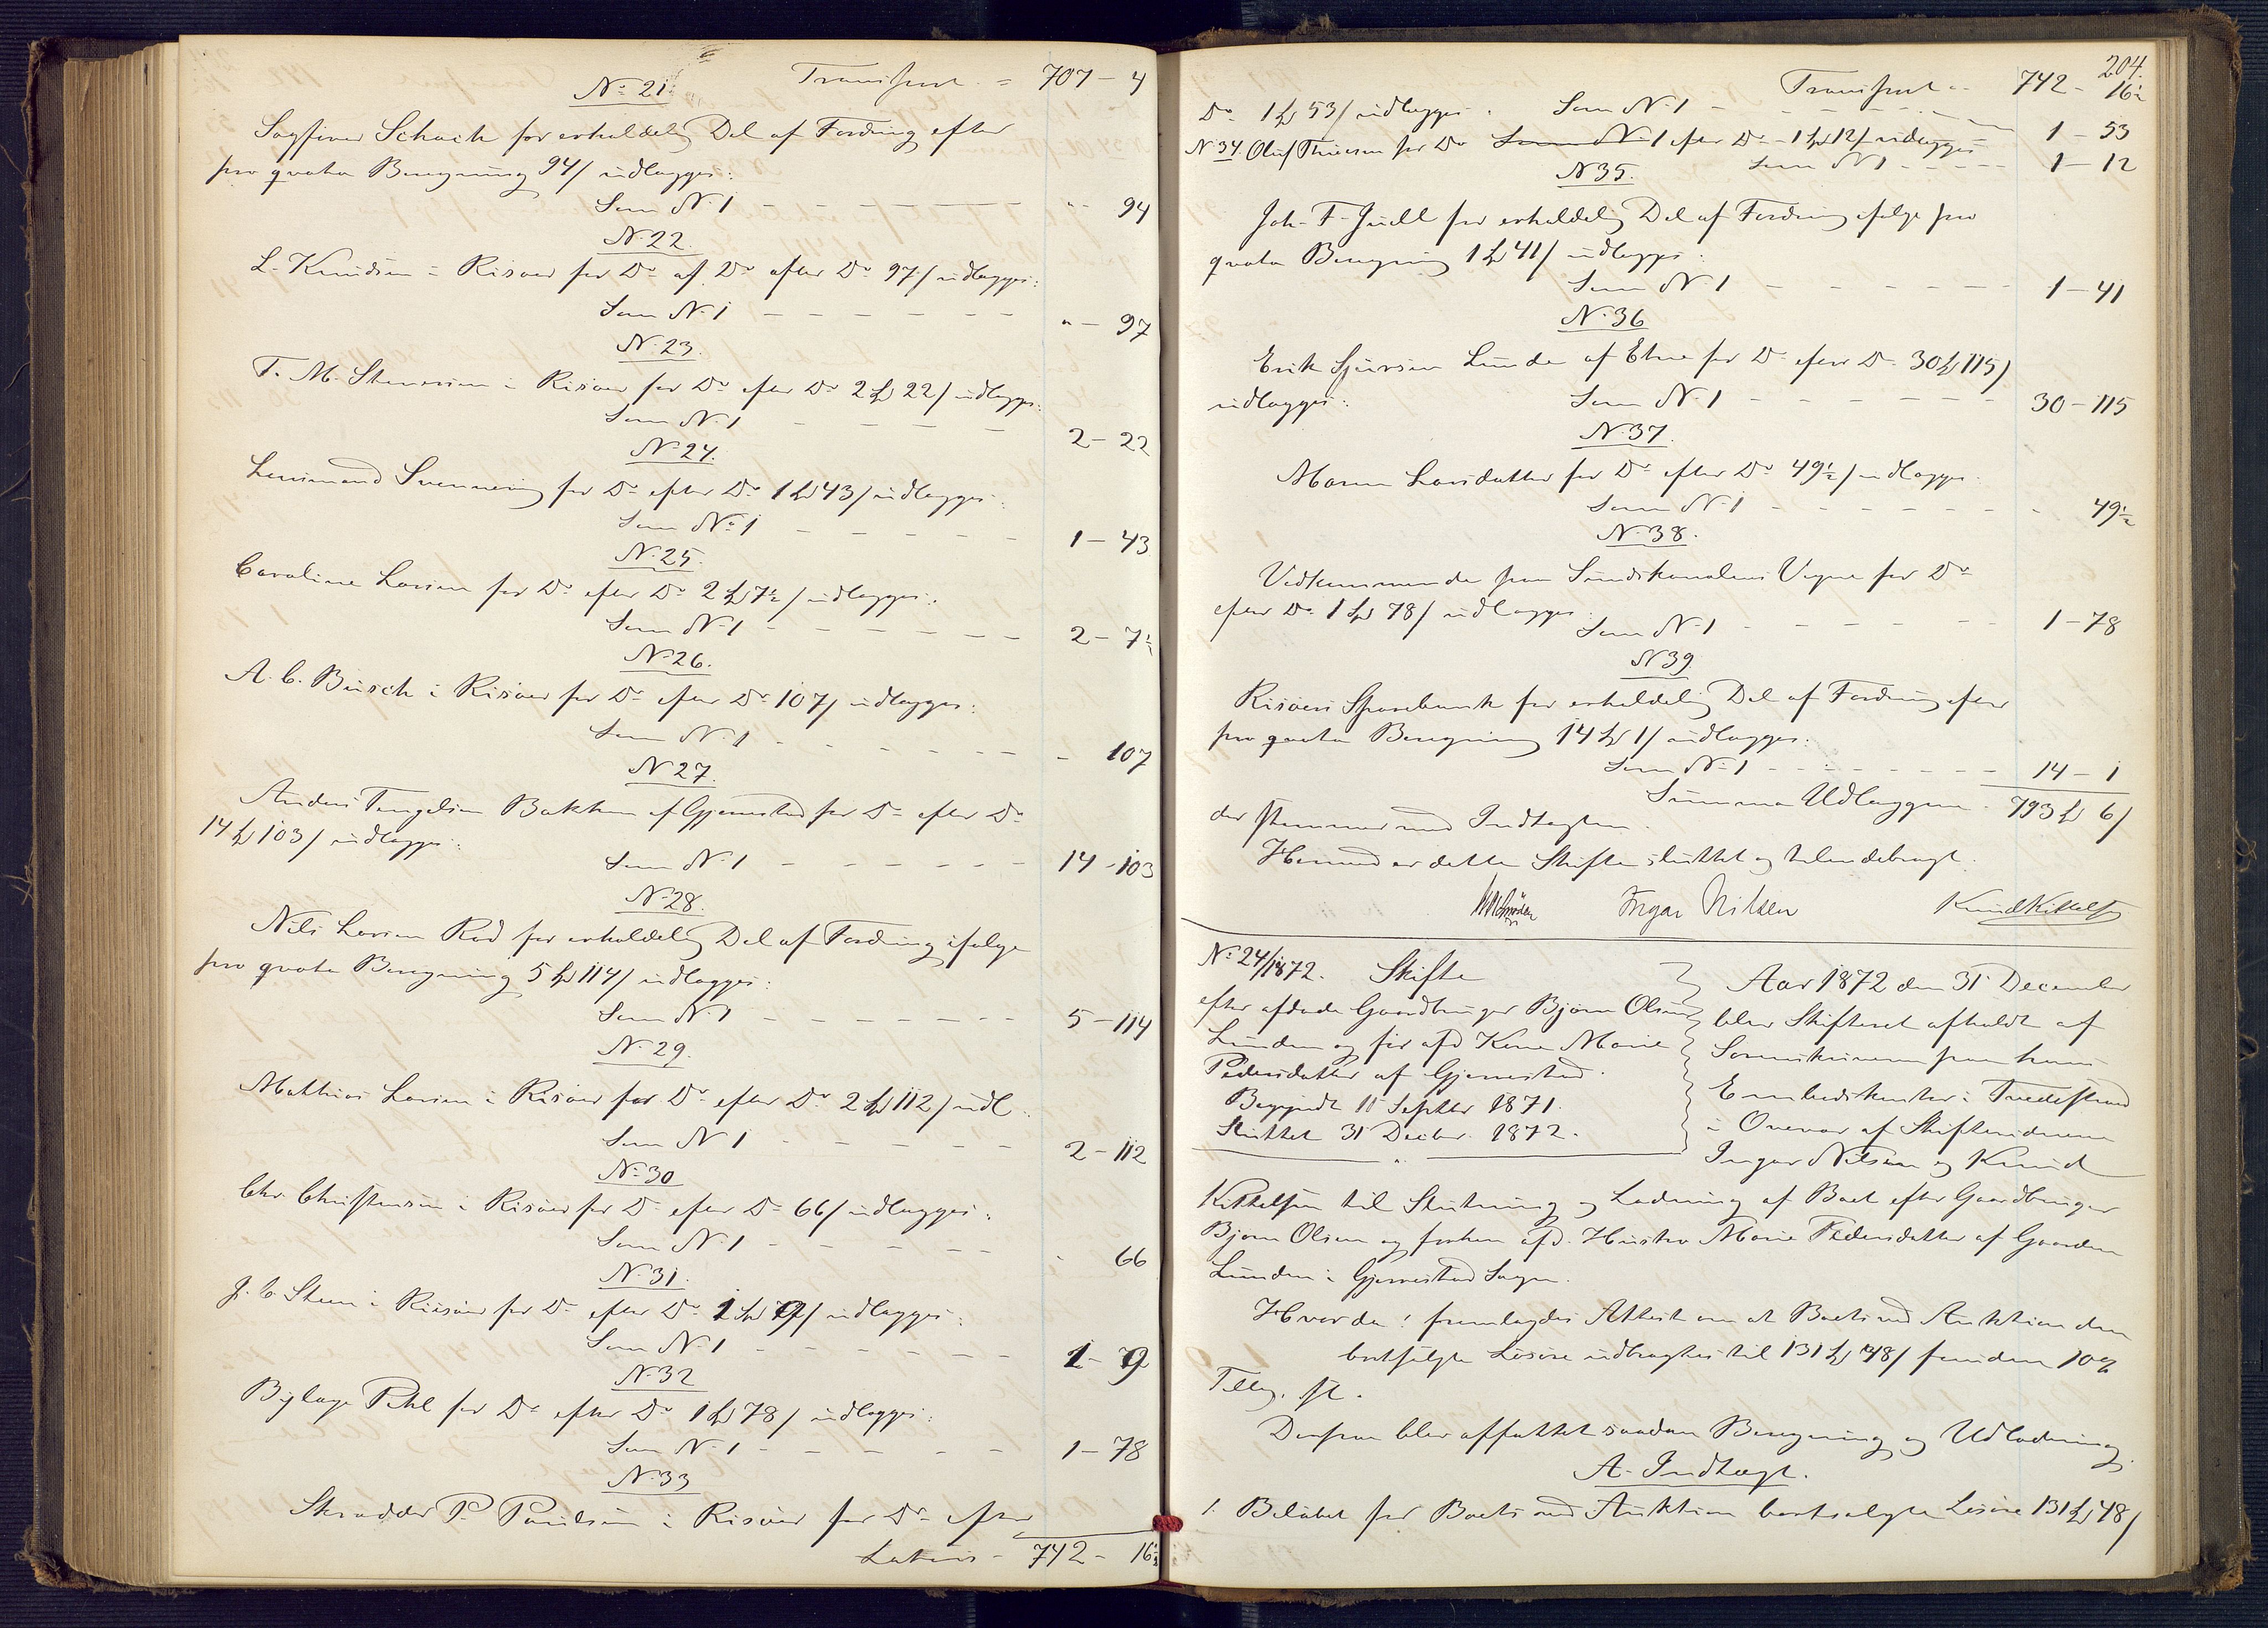 Transport = 707 - 4
No 21
Sagfører Schach for erholdelig Del af Fording efter
pro qvota Beregning 94/ udlægges:
Som No 1 - - - " - 94
No 22.
L. Knudsen i Risøer for Do af Do efter Do 97/ udlægges:
Som No 1 - - - " - 97
No 23.
T. M. Stensen i Risøer for Do efter Do 2 Spd 22/ udlægges:
Som No 1 - - - 2 - 22
No 24.
Lensmand Svenning for Do efter Do 1 Spd 43/ udlægges:
Som No 1 - - - 1 - 43
No 25.
Caroline Larsen for Do efter Do 2 Spd 7½/ udlægges:
Som No 1 - - - 2 - 7½
No 26.
A. C. Busch i Risøer for Do efter Do 107/ udlægges:
Som No 1 - - - - 107
No 27.
Anders Tengelsen Bakken af Gjerrestad for Do efter Do
14 Spd 103/ udlægges:
Som No 1 - - - 14 - 103
No 28.
Nils Larsen Rød for erholdelig Del af Fordring ifølge
pro qvota Beregning 5 Spd 114/ udlægges:
Som No 1 - - - 5 - 114
No 29.
Mathias Larsen i Risøer for Do efter Do 2 Spd 112/ udl:
Som No 1 - - - 2 - 112
No 30
Chr. Christensen i Risøer for Do efter Do 66/ udlægges:
Som No 1 - - - " 66
No 31.
J. C. Steen i Risøer for Do efter Do 1 Spd 9/ udlægges:
Som No 1 - - - 1 - 9
No 32
Byfoged Pihl for Do efter Do 1 Spd 78/ udlægges:
Som No 1 - - - 1 - 78
No 33
Skrædder P. Paulsen i Risøer for Do efter
Lateris - 742 - 16½
204.
Transport - 742 - 16½
Do 1 Spd 53/ udlægges: Som No 1 - - - 1 - 53
No 34. Oluf Thuesen for Do Som No 1 efter Do 1 Spd 12/ udlægges
Som No 1 - - - 1 - 12
No 35.
Joh. F. Juell for erholdelig Del af Fordring ifølge pro
qvota Beregning 1 Spd 41/ udlægges:
Som No 1 - - - 1 - 41
No 36
Erik Sjursen Lunde af Etne for Do efter Do 30 Spd 115/
udlægges: Som No 1 - - - 30 - 115
No 37.
Maren Larsdatter for Do efter Do 49½/ udlægges
Som No 1 - - - 49½
No 38.
Vedkommende paa Sundskanalens Vegne for Do
efter Do 1 Spd 78/ udlægges
Som No 1 - - - 1 - 78
No 39.
Risøers Sparebank for erholdelig Del af Fordring efter
pro qvota Beregning 14 Spd 1/ udlægges:
Som No 1 - - - 14 - 1
Summa Udlæggene 793 Spd 6/
der stemmer med Indtægten.
Hermed er dette Skifte sluttet og tilendebragt.
Ingar Nilsen Knud Kittelsen
No 24/1872. Skifte
efter afdøde Gaardbruger Bjørn Olsen
Lunden og før afd Kone Marie
Pedersdatter af Gjerrestad.
Begyndt 11 Septbr 1871.
Sluttet 31 Decbr. 1872.
Aar 1872 den 31 December
blev Skifteret afholdt af
Sorenskriveren paa hans
Embedskontor i Tvedestrand
i Overvær af Skiftevidnerne
Ingar Nilsen og Knud
Kittelsen til Slutning og Lodning af Boet efter Gaardbruger
Bjørn Olsen og forhen afd. Hustro Marie Pedersdatter af Gaarden
Lunden i Gjerrestad Sogn.
Hvorda: fremlagdes Attest om at Boets ved Auktion den
bortsolgte Løsøre udbragtes til 131 Spd 48/ foruden 10%
Tillæg.
Derpaa blev affattet saadan Beregning og Udlodning
A. Indtægt.
1. Beløbet for Boets ved Auktion bortsolgte Løsøre 131 Spd 48/